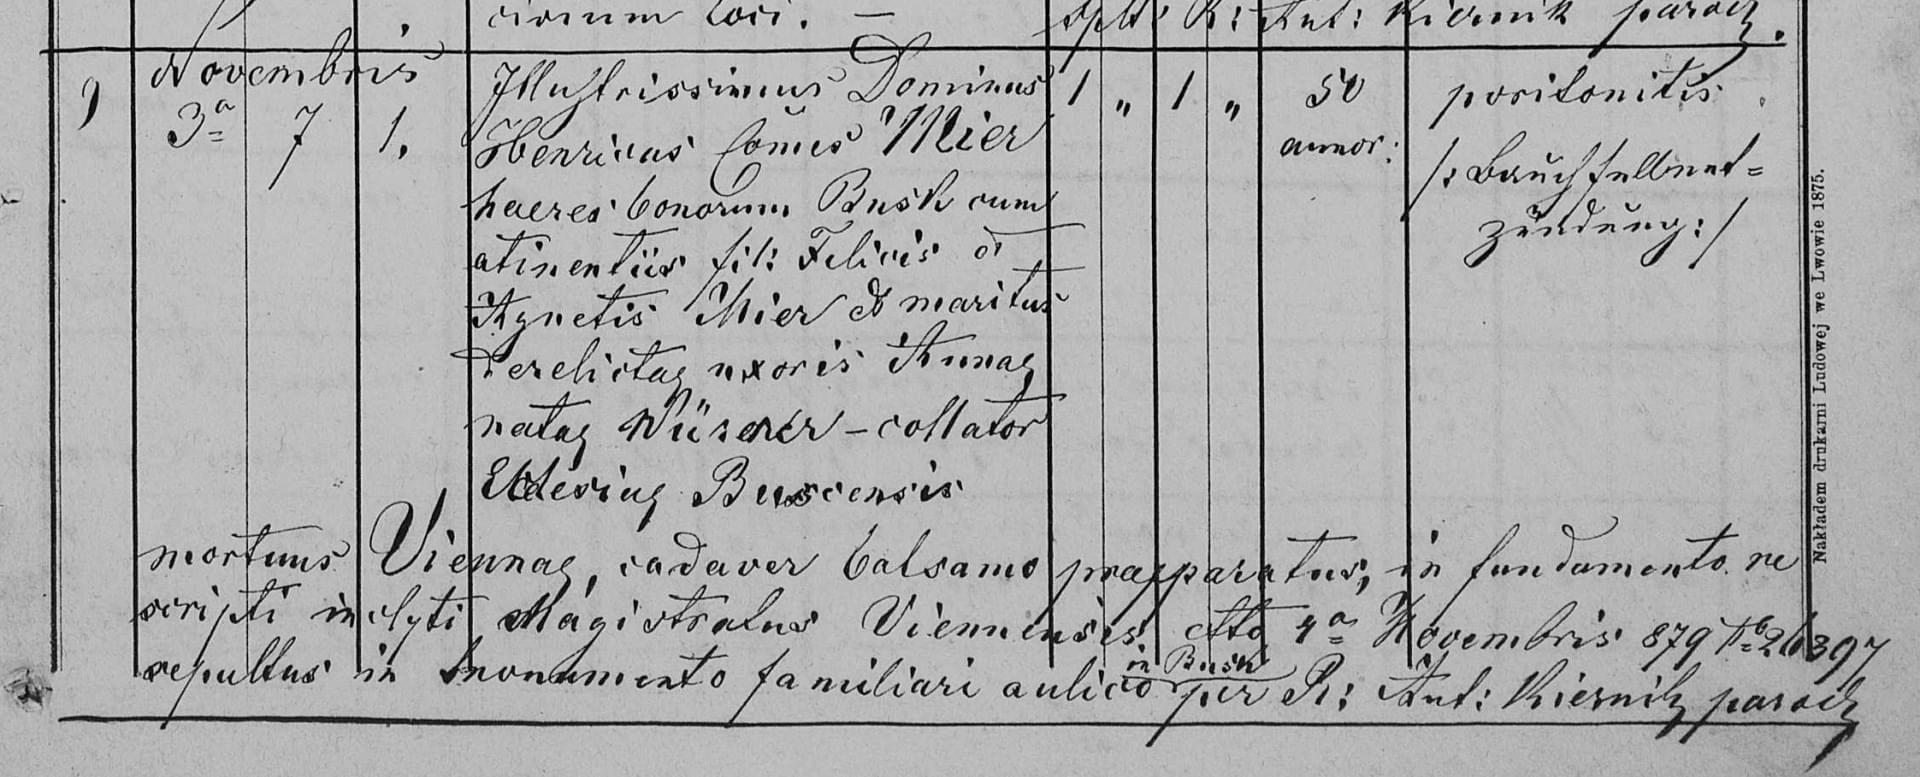 civium loci. —
splt: R: Ant: Kiernik paroch.
Novembris
9 3ª 7 1. Illustrissimus Dominus 1 „ 1 „ 50 peritonitis
Henricus Comes Mier annor: /: Bauchfellent=
haeres bonorum Busk cum zündung: /
atinentiis fil: Felicis et
Agnetis Mier et maritus
derelictae uxoris Annae
natae – collator
Buscensis
mortuus Viennae, cadaver balsamo praeparatus, in fundamento re
scripti inclyti Magistratus Viennensis dto 4ª Novembris 879 26397
sepultus in monumento familiari aulico in Busk per R: Ant: Kiernik paroch
Nakładem drukarni Ludowej we Lwowie 1875.